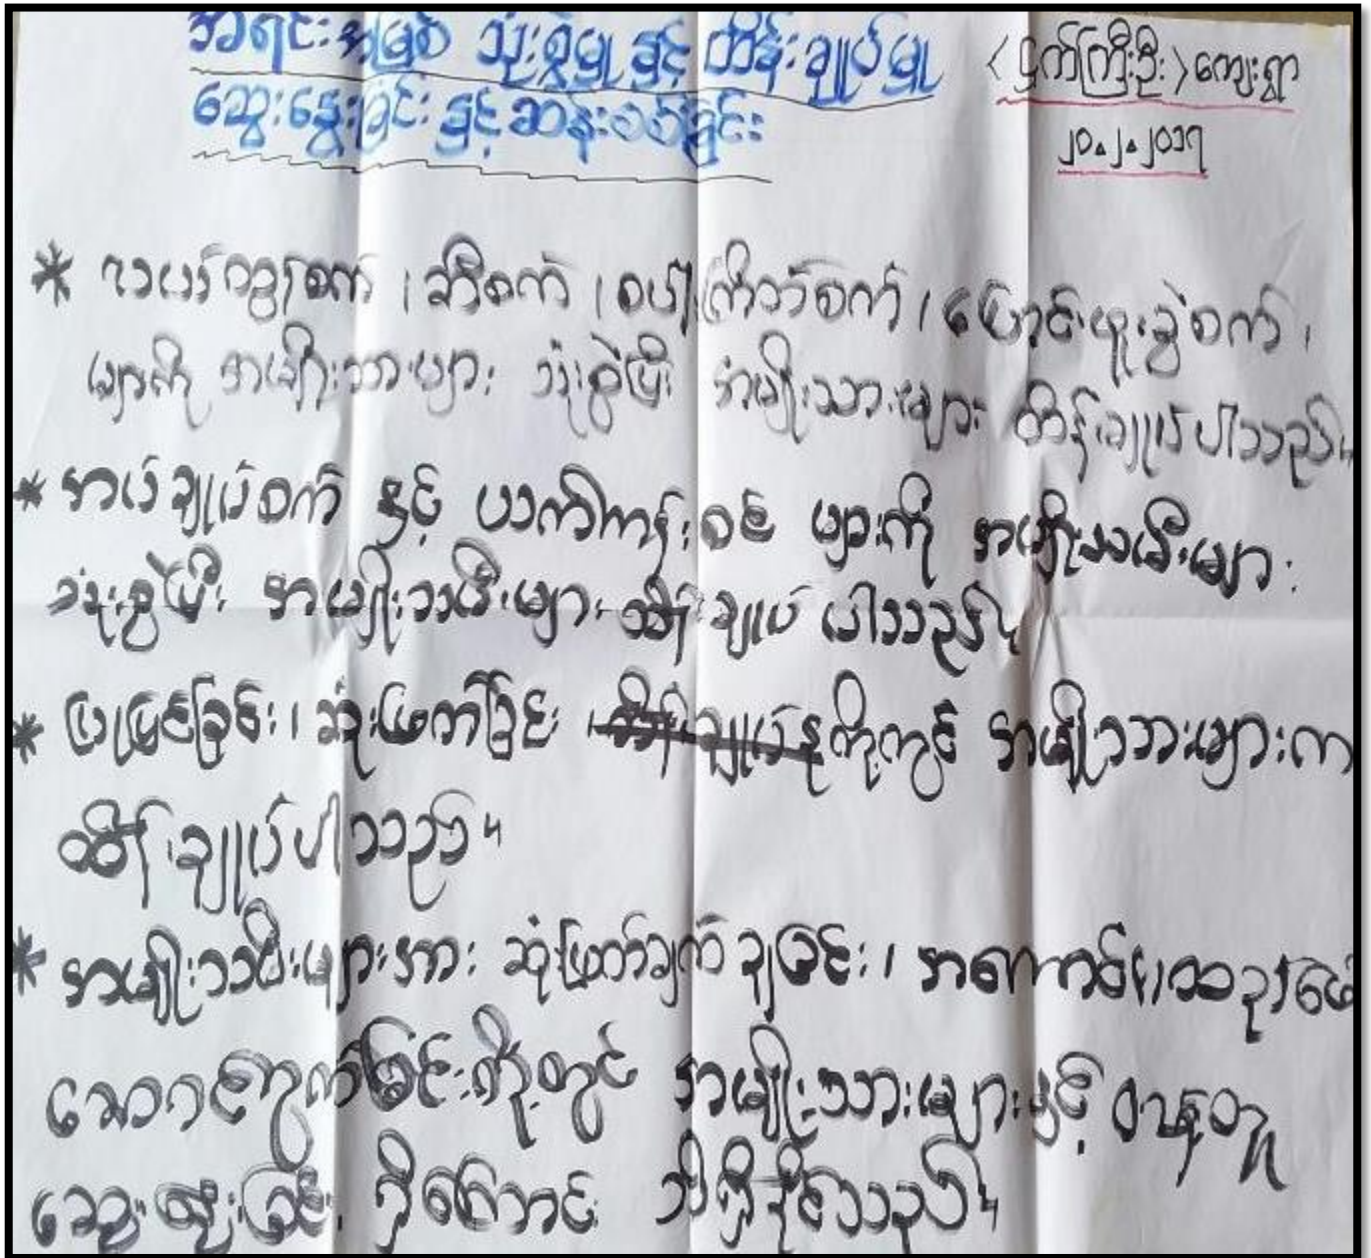 အရင်းအမြစ် သုံးစွဲမှု နှင့် ထိန်းချုပ်မှု
ဆွေးနွေးခြင်း နှင့် ဆန်းစစ်ခြင်း
(ငှက်ကြီးဦး) ကျေးရွာ
၂၀.၂.၂၀၁၇
* လယ်ထွန်စက်၊ ဆီစက်၊ စပါးကြိတ်စက်၊ ပြောင်းဖူးခွဲစက်၊
များကို အမျိုးသားများ သုံးစွဲပြီး အမျိုးသားများ ထိန်းချုပ်ပါသည်။
* အပ်ချုပ်စက် နှင့် ယက်ကန်းစင် များကို အမျိုးသမီးများ
သုံးစွဲပြီး အမျိုးသမီးများ ထိန်းချုပ် ပါသည်။
* ပြုပြင်ခြင်း၊ ဆုံးဖြတ်ခြင်း၊ တို့တွင် အမျိုးသားများက
ထိန်းချုပ်ပါသည်။
* အမျိုးသမီးများအား ဆုံးဖြတ်ချက် ချခြင်း၊ အကောင်အထည်ဖော်
ဆောင်ရွက်ခြင်းတို့တွင် အမျိုးသားများနှင့်
ဆွေးနွေးခြင်း ရှိကြောင်း သိရှိနိုင်သည်။